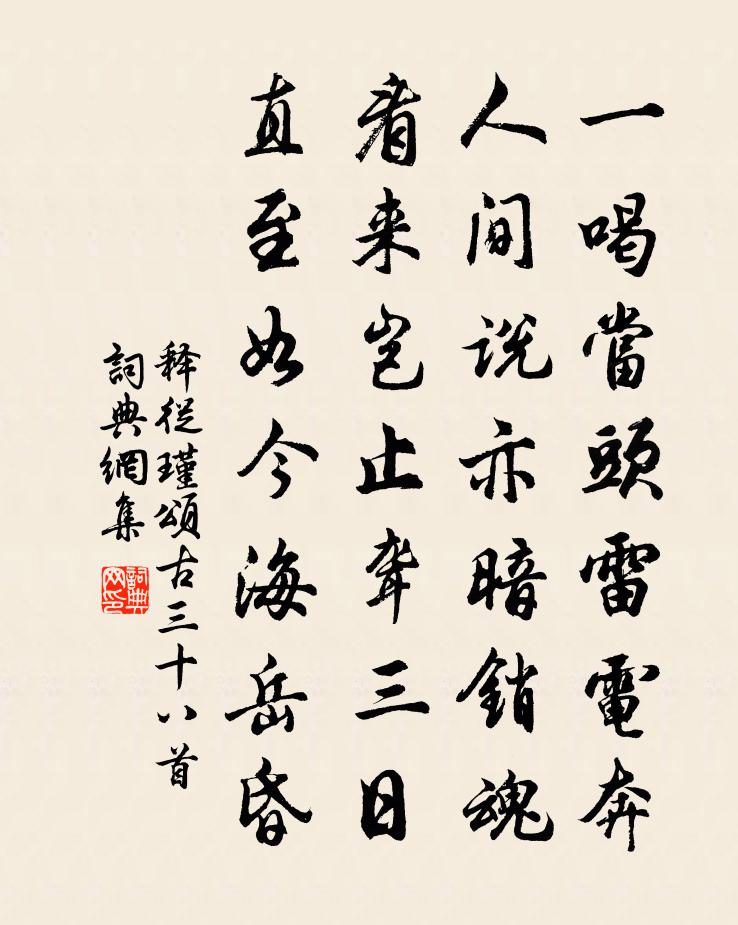 一喝當頭雷電奔
人间说亦暗銷魂
看来岂止聋三日
直至如今海岳昏
释從瑾頌古三十八首
詞典網集
詞典
网印